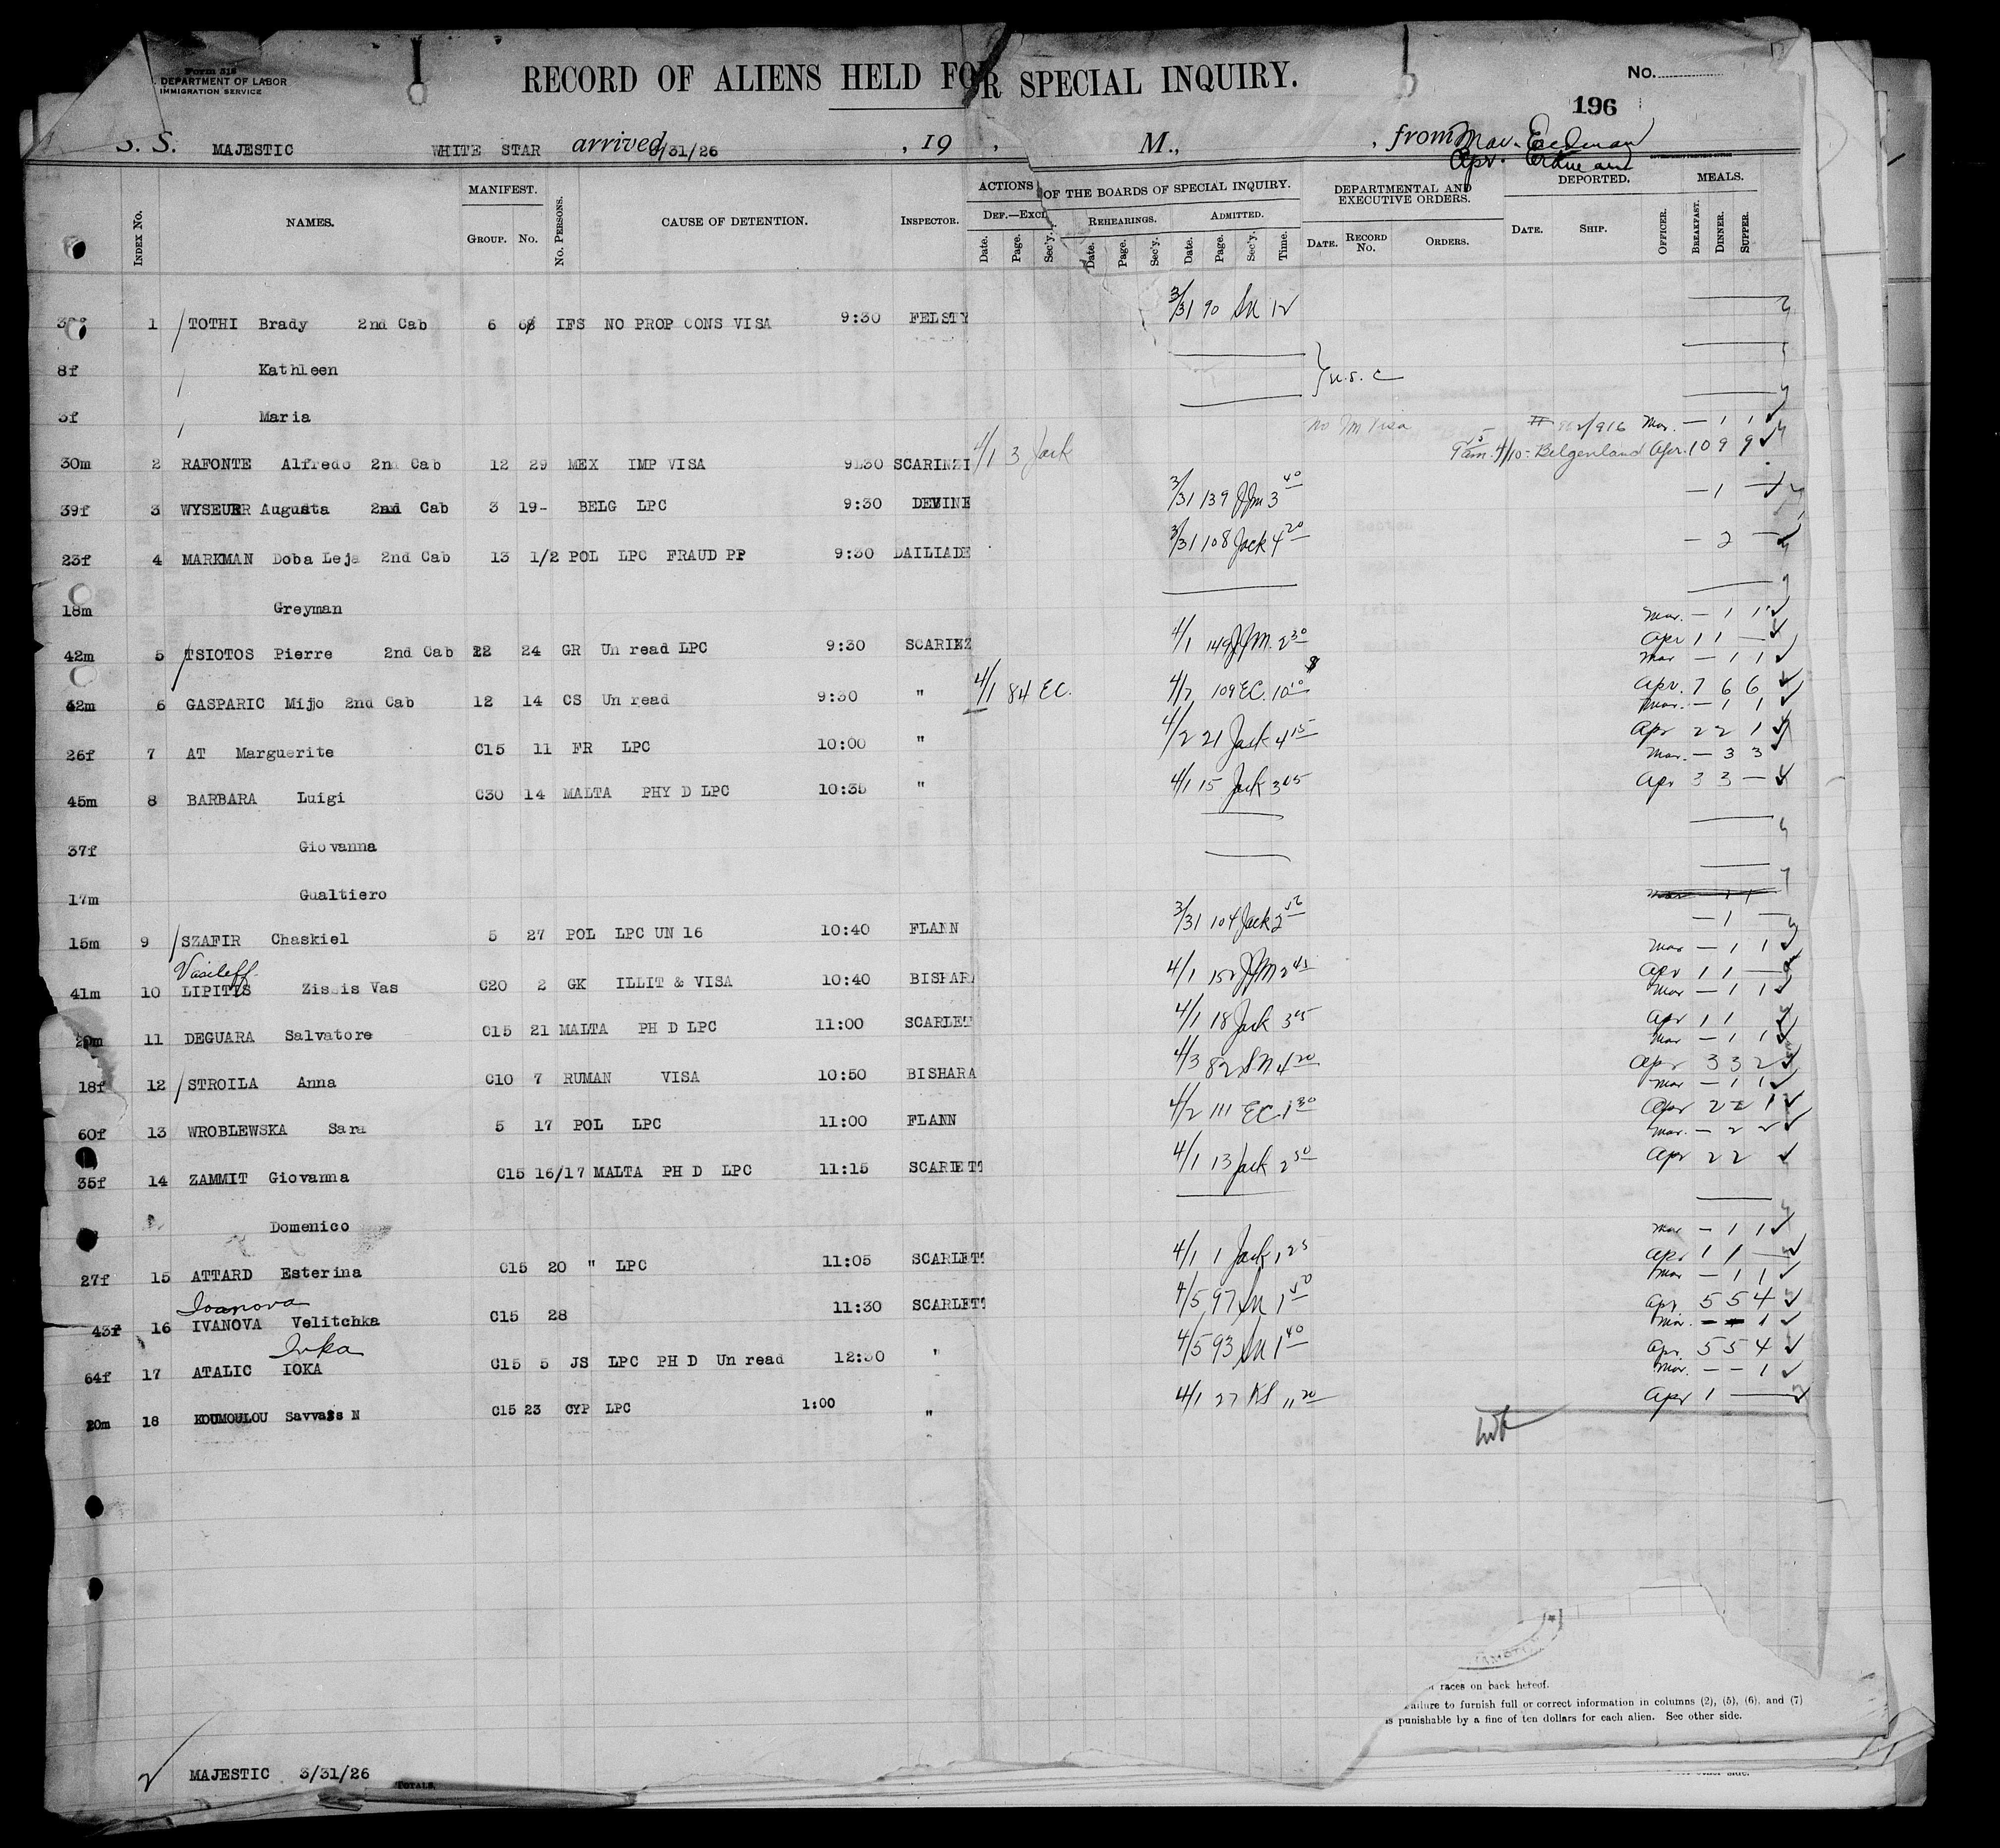 Form 518
DEPARTMENT OF LABOR
IMMIGRATION SERVICE
RECORD OF ALIENS HELD FOR SPECIAL INQUIRY.
No.
196
S. S. MAJESTIC WHITE STAR arrived 3/31/26 , 19 , M., , from Mar. Erdman
Apr. Erdman
INDEX No. NAMES. MANIFEST. GROUP. No. No. PERSONS. CAUSE OF DETENTION. INSPECTOR. ACTIONS OF THE BOARDS OF SPECIAL INQUIRY. DEF.—EXCL Date. Page. Sec'y. REHEARINGS. Date. Page. Sec'y. ADMITTED. Date. Page. Sec'y. Time. DEPARTMENTAL AND EXECUTIVE ORDERS. DATE. RECORD No. ORDERS. DEPORTED. DATE. SHIP. OFFICER. MEALS. BREAKFAST. DINNER. SUPPER.
1 TOTHI Brady 2nd Cab 6 IFS NO PROP CONS VISA 9:30 FELSTY 3/31 90 SN 12
8f Kathleen } U.S.C
3f Maria
30m 2 RAFONTE Alfredo 2nd Cab 12 29 MEX IMP VISA 9:30 SCARINZI 4/1 3 Jack No Im Visa 4/10 - Belgenland Mar. — 1 1 Apr. 10 9 9
39f 3 WYSEUR Augusta 2nd Cab 3 19- BELG LPC 9:30 DEVINE 3/31 139 JJM 3 40 — 1 —
23f 4 MARKMAN Doba Leja 2nd Cab 13 1/2 POL LPC FRAUD PP 9:30 DAILIADE 3/31 108 Jack 4 20 — 2 —
18m Greyman
42m 5 TSIOTOS Pierre 2nd Cab 22 24 GR Un read LPC 9:30 SCARINZ 4/1 149 JJM. 2 30 Mar. — 1 1 Apr 1 1 —
42m 6 GASPARIC Mijo 2nd Cab 12 14 CS Un read 9:30 " 4/1 84 EC. 4/7 109 EC. 10 10 Mar — 1 1 Apr. 7 6 6
26f 7 AT Marguerite C15 11 FR LPC 10:00 " 4/2 21 Jack 4 15 Mar. — 1 1 Apr 2 2 1
45m 8 BARBARA Luigi C30 14 MALTA PHY D LPC 10:35 " 4/1 15 Jack 3 05 Mar. — 3 3 Apr 3 3 —
37f Giovanna
17m Gualtiero
15m 9 SZAFIR Chaskiel 5 27 POL LPC UN 16 10:40 FLANN 3/31 104 Jack — 1 —
Vasileff
41m 10 LIPITIS Zissis Vas C20 2 GK ILLIT & VISA 10:40 BISHARA 4/1 152 JJM 2 45 Mar — 1 1 Apr 1 1 —
11 DEGUARA Salvatore C15 21 MALTA PH D LPC 11:00 SCARLET 4/1 18 Jack 3 05 Mar — 1 1 Apr 1 1
18f 12 STROILA Anna C10 7 RUMAN VISA 10:50 BISHARA 4/3 82 SN 4 20 Mar — 1 1 Apr 3 3 2
60f 13 WROBLEWSKA Sara 5 17 POL LPC 11:00 FLANN 4/2 111 EC 1 30 Mar — 1 1 Apr 2 2 1
35f 14 ZAMMIT Giovanna C15 16/17 MALTA PH D LPC 11:15 SCARLETT 4/1 13 Jack 2 50 Mar. — 2 2 Apr 2 2
Domenico
27f 15 ATTARD Esterina C15 20 " LPC 11:05 SCARLETT 4/1 1 Jack 1 25 Mar — 1 1 Apr 1 1 —
Ioanova
43f 16 IVANOVA Velitchka C15 28 11:30 SCARLETT 4/5 97 SN 1 50 Mar — 1 1 Apr. 5 5 4
Ivka
64f 17 ATALIC IOKA C15 5 JS LPC PH D Un read 12:30 " 4/5 93 SN 1 40 Mar. — — 1 Apr. 5 5 4
20m 18 KOUMOULOU Savvas N C15 23 CYP LPC 1:00 " 4/1 27 KS 11 20 Mar. — — 1 Apr 1 —
races on back hereof.
failure to furnish full or correct information in columns (2), (5), (6), and (7)
is punishable by a fine of ten dollars for each alien. See other side.
MAJESTIC 3/31/26
TOTALS.